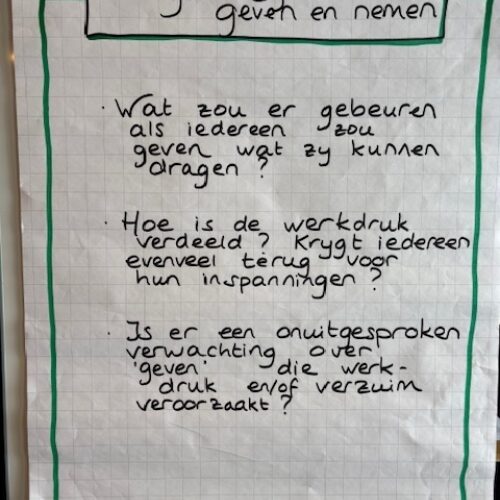 geven en nemen
· Wat zou er gebeuren
als iedereen zou
geven wat zy kunnen
dragen ?
· Hoe is de werkdruk
verdeeld ? Krygt iedereen
evenveel terug voor
hun inspanningen ?
· Is er een onuitgesproken
verwachting over
'geven' die werk-
druk en/of verzuim
veroorzaakt ?